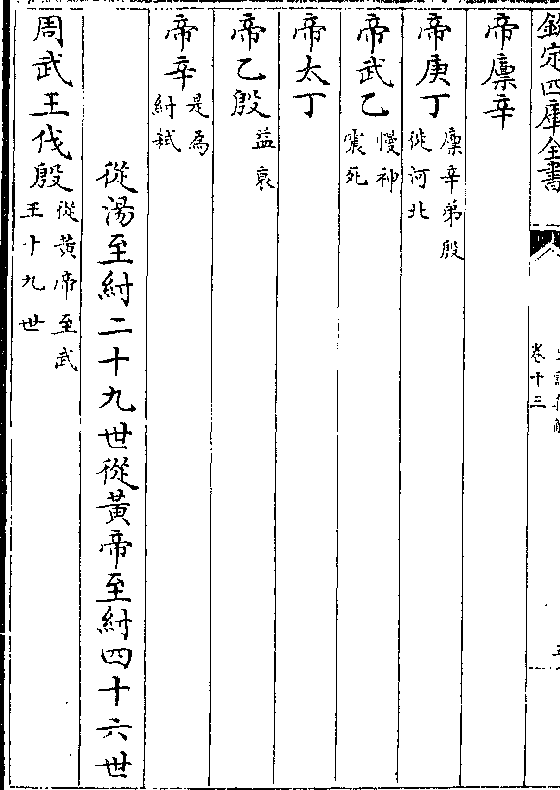 欽定四庫全書
卷十三
帝廩辛
帝庚丁廩辛弟殷徙河北
帝武乙慢神震死
帝太丁
帝乙殷益衰
帝辛是為紂弑
從湯至紂二十九世從黃帝至紂四十六世
周武王伐殷從黃帝至武王十九世